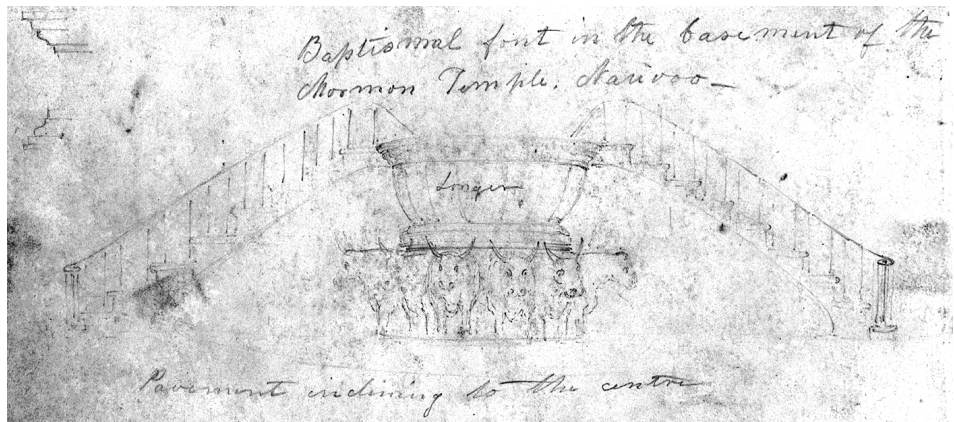 Baptismal font in the basement of the
Mormon Temple. Nauvoo —
Longer
Pavement inclining to the centre